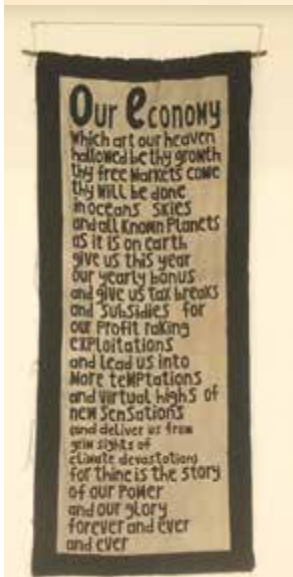 Our economy
Which art our heaven
hallowed be thy growth
thy free Markets come
thy will be done
in oceans skies
and all Known Planets
as it is on earth
give us this year
our yearly bonus
and give us tax breaks
and Subsidies for
our Profit raking
exPloitations
and lead us into
More teMPtations
and virtual highs of
new SenSations
(and deliver us from
grim sights of
climate devastation)
for thine is the story
of our PoWer
and our glory
forever and ever
and ever